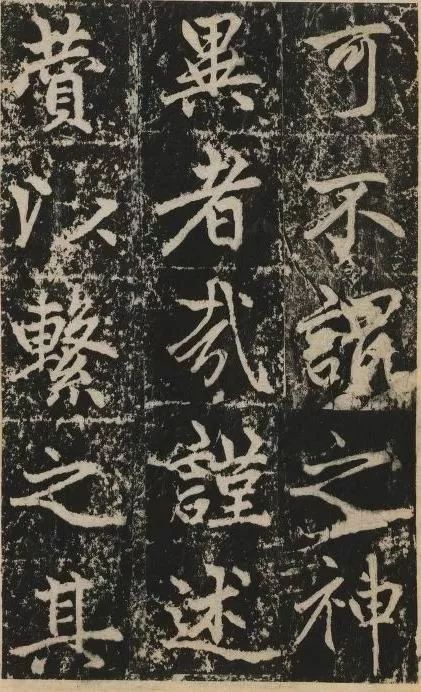 可不謂之神
異者哉謹述
贊以繫之其